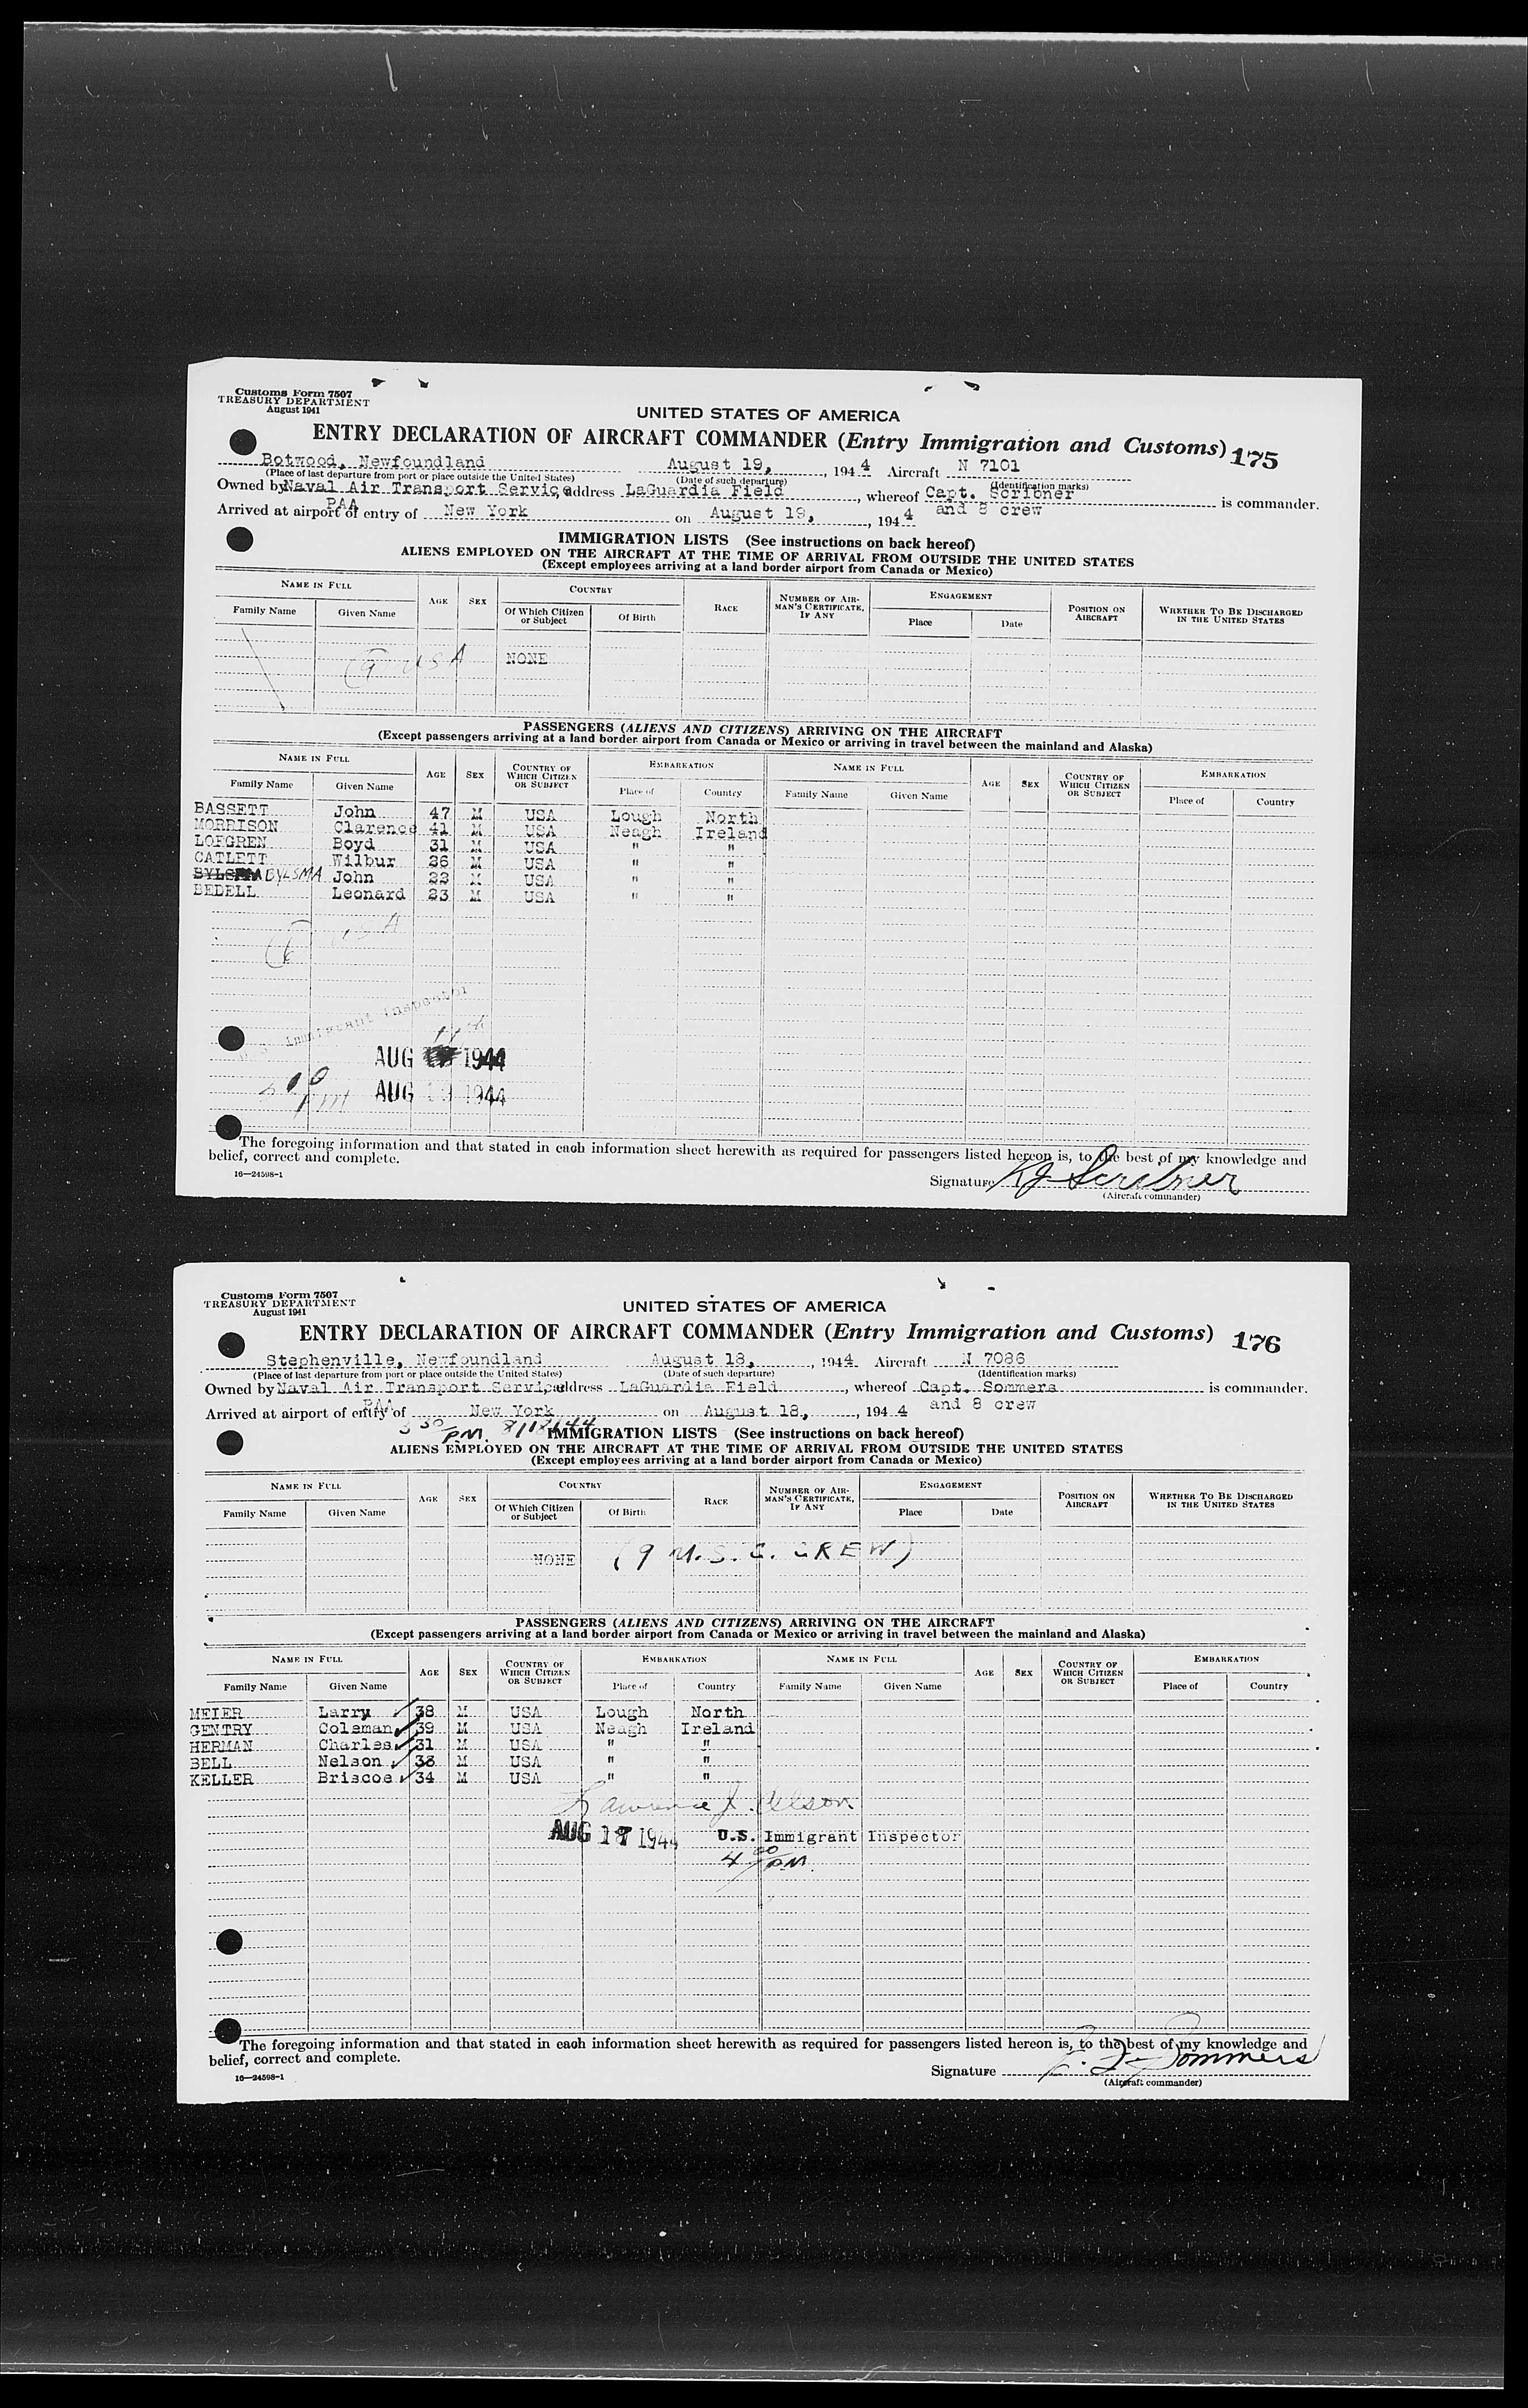 Customs Form 7507
TREASURY DEPARTMENT
August 1941
UNITED STATES OF AMERICA
ENTRY DECLARATION OF AIRCRAFT COMMANDER (Entry Immigration and Customs) 175
Botwood, Newfoundland August 19, , 1944 Aircraft N 7101
(Place of last departure from port or place outside the United States) (Date of such departure) (Identification marks)
Owned by Naval Air Transport Service address LaGuardia Field , whereof Capt. Scribner is commander.
PAA and 8 crew
Arrived at airport of entry of New York on August 19, , 1944
IMMIGRATION LISTS (See instructions on back hereof)
ALIENS EMPLOYED ON THE AIRCRAFT AT THE TIME OF ARRIVAL FROM OUTSIDE THE UNITED STATES
(Except employees arriving at a land border airport from Canada or Mexico)
NAME IN FULL AGE SEX COUNTRY RACE NUMBER OF AIRMAN'S CERTIFICATE, IF ANY ENGAGEMENT POSITION ON AIRCRAFT WHETHER TO BE DISCHARGED IN THE UNITED STATES
Family Name Given Name Of Which Citizen or Subject Of Birth Place Date
(9 USA NONE
PASSENGERS (ALIENS AND CITIZENS) ARRIVING ON THE AIRCRAFT
(Except passengers arriving at a land border airport from Canada or Mexico or arriving in travel between the mainland and Alaska)
NAME IN FULL AGE SEX COUNTRY OF WHICH CITIZEN OR SUBJECT EMBARKATION NAME IN FULL AGE SEX COUNTRY OF WHICH CITIZEN OR SUBJECT EMBARKATION
Family Name Given Name Place of Country Family Name Given Name Place of Country
BASSETT John 47 M USA Lough North
MORRISON Clarence 41 M USA Neagh Ireland
LOFGREN Boyd 31 M USA " "
CATLETT Wilbur 26 M USA " "
BYLSMA John 22 M USA " "
BEDELL Leonard 23 M USA " "
USA
Immigrant Inspector
AUG 1944
AUG 1944
PM
The foregoing information and that stated in each information sheet herewith as required for passengers listed hereon is, to the best of my knowledge and
belief, correct and complete.
16—24598-1
Signature KJ Scribner
(Aircraft commander)
Customs Form 7507
TREASURY DEPARTMENT
August 1941
UNITED STATES OF AMERICA
ENTRY DECLARATION OF AIRCRAFT COMMANDER (Entry Immigration and Customs) 176
Stephenville, Newfoundland August 18, , 1944 Aircraft N 7086
(Place of last departure from port or place outside the United States) (Date of such departure) (Identification marks)
Owned by Naval Air Transport Service address LaGuardia Field , whereof Capt. Sommers is commander.
PAA and 8 crew
Arrived at airport of entry of New York on August 18, , 1944
3 30 PM. 8/18/44
IMMIGRATION LISTS (See instructions on back hereof)
ALIENS EMPLOYED ON THE AIRCRAFT AT THE TIME OF ARRIVAL FROM OUTSIDE THE UNITED STATES
(Except employees arriving at a land border airport from Canada or Mexico)
NAME IN FULL AGE SEX COUNTRY RACE NUMBER OF AIRMAN'S CERTIFICATE, IF ANY ENGAGEMENT POSITION ON AIRCRAFT WHETHER TO BE DISCHARGED IN THE UNITED STATES
Family Name Given Name Of Which Citizen or Subject Of Birth Place Date
NONE (9 U.S.C. CREW)
PASSENGERS (ALIENS AND CITIZENS) ARRIVING ON THE AIRCRAFT
(Except passengers arriving at a land border airport from Canada or Mexico or arriving in travel between the mainland and Alaska)
NAME IN FULL AGE SEX COUNTRY OF WHICH CITIZEN OR SUBJECT EMBARKATION NAME IN FULL AGE SEX COUNTRY OF WHICH CITIZEN OR SUBJECT EMBARKATION
Family Name Given Name Place of Country Family Name Given Name Place of Country
MEIER Larry 38 M USA Lough North
GENTRY Coleman 39 M USA Neagh Ireland
HERMAN Charles 31 M USA " "
BELL Nelson 33 M USA " "
KELLER Briscoe 34 M USA " "
Lawrence J.
AUG 1944 U.S. Immigrant Inspector
4 00 PM.
The foregoing information and that stated in each information sheet herewith as required for passengers listed hereon is, to the best of my knowledge and
belief, correct and complete.
16—24598-1
Signature Sommers
(Aircraft commander)